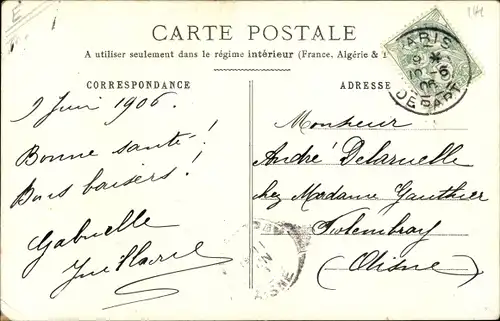 CARTE POSTALE
A utiliser seulement dans le régime intérieur (France, Algérie &
CORRESPONDANCE
ADRESSE
PARIS
DÉPART
9 Juin 1906.
Bonne santé!
Bons baisers!
Gabrielle
Monsieur
André Delaruelle
chez Madame Gauthier
Folembray
(Aisne)
AISNE